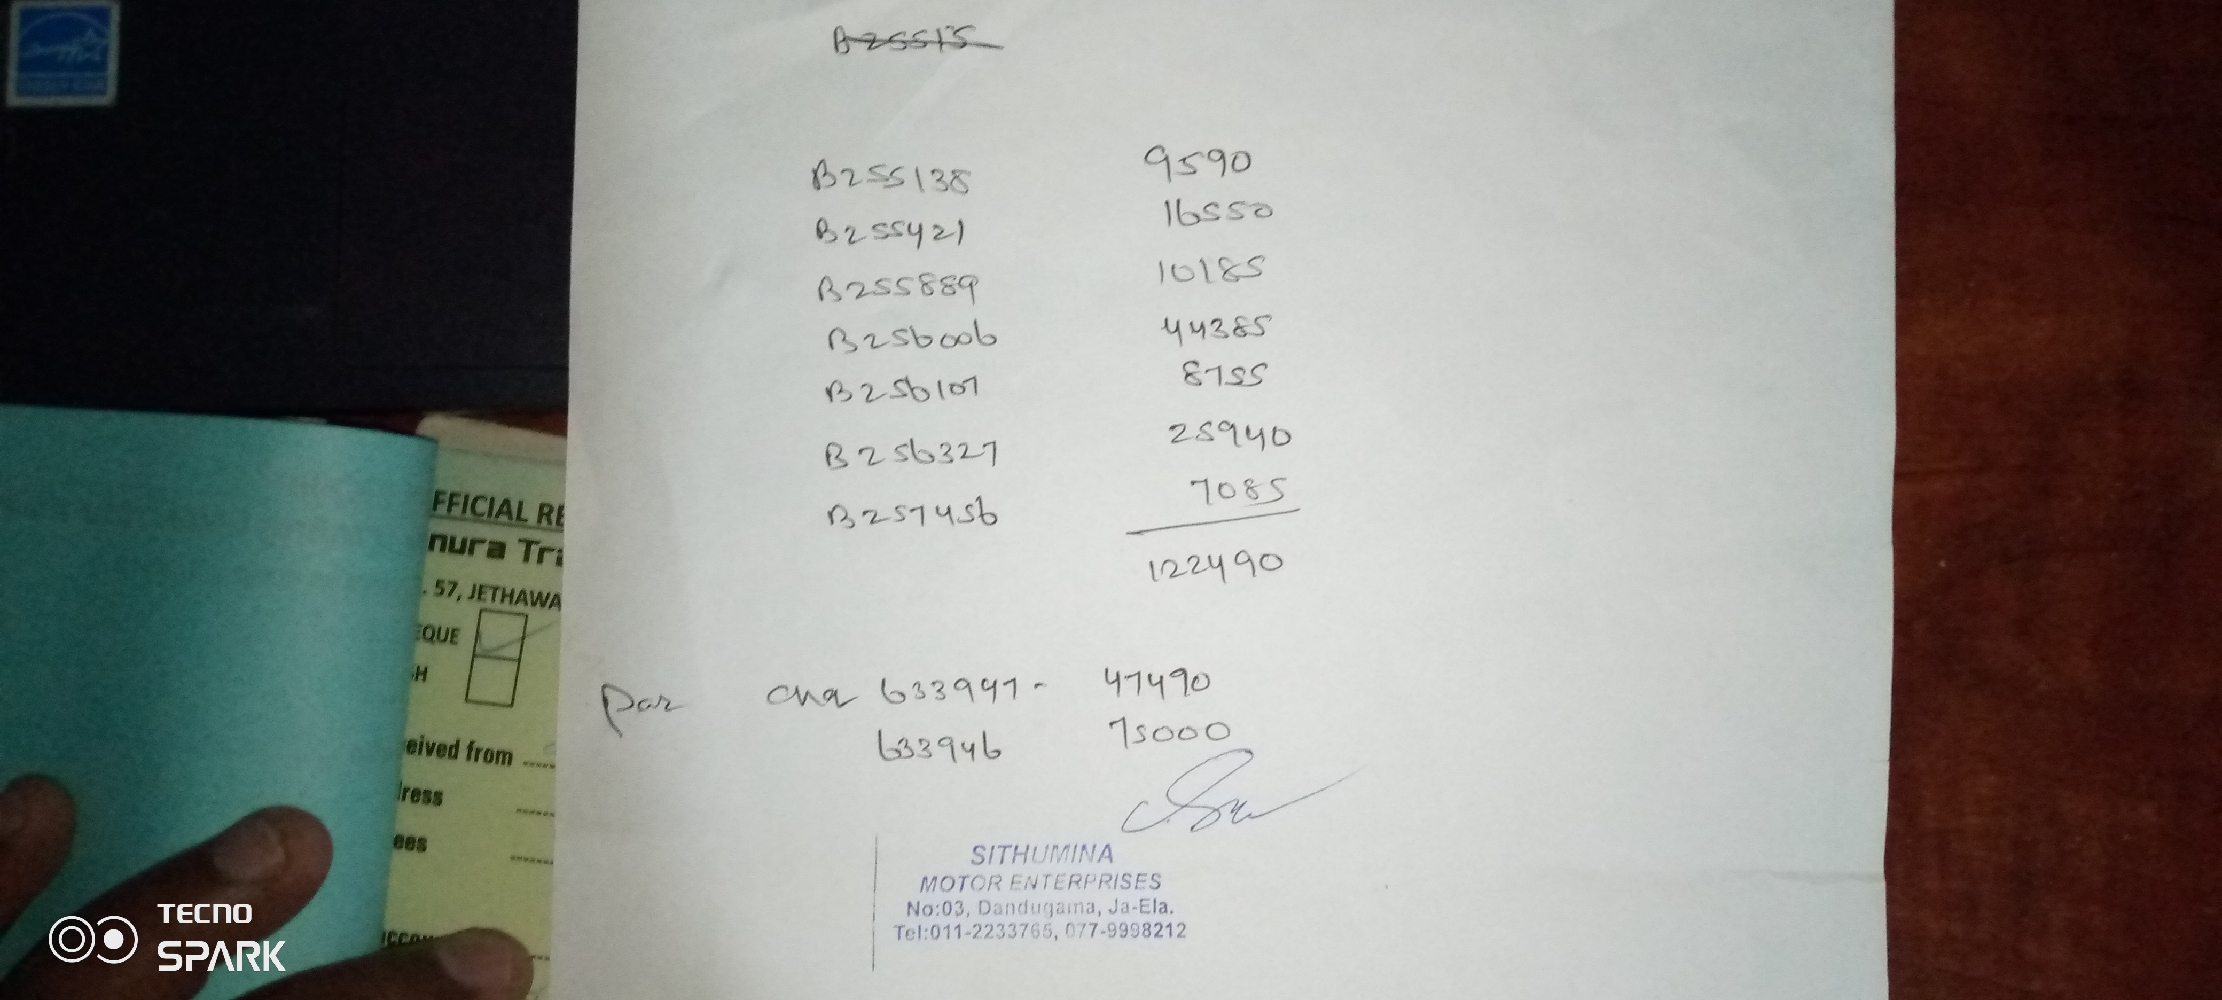 B25515
B255138 9590
B255421 16550
B255889 10185
B256006 44385
B256107 8755
B256327 25940
B257456 7085
122490
633947 - 47490
633946 75000
SITHUMINA
MOTOR ENTERPRISES
No:03, Dandugama, Ja-Ela.
Tel:011-2233765, 077-9998212
FFICIAL RE
nura Tra
. 57, JETHAWA
EQUE
H
eived from
ress
ees
TECNO
SPARK